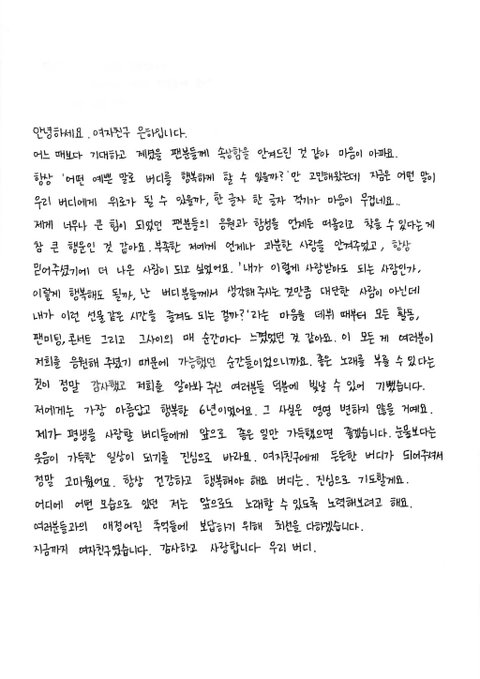 안녕하세요. 여자친구 은하입니다.
어느 때보다 기대하고 계셨을 팬분들께 속상함을 안겨드린 것 같아 마음이 아파요.
항상 '어떤 예쁜 말로 버디를 행복하게 할 수 있을까?'만 고민해왔는데 지금은 어떤 말이
우리 버디에게 위로가 될 수 있을까, 한 글자 한 글자 적기가 마음이 무겁네요..
제게 너무나 큰 힘이 되었던 팬분들의 응원과 함성을 언제든 떠올리고 찾을 수 있다는 게
참 큰 행운인 것 같아요. 부족한 저에게 언제나 과분한 사랑을 안겨주었고, 항상
믿어주셨기에 더 나은 사람이 되고 싶었어요. '내가 이렇게 사랑받아도 되는 사람인가,
이렇게 행복해도 될까, 난 버디분들께서 생각해 주시는 것만큼 대단한 사람이 아닌데
내가 이런 선물 같은 시간을 즐겨도 되는 걸까?'라는 마음을 데뷔 때부터 모든 활동,
팬미팅, 콘서트 그리고 그사이의 매 순간마다 느꼈었던 것 같아요. 이 모든 게 여러분이
저희를 응원해 주셨기 때문에 가능했던 순간들이었으니까요. 좋은 노래를 부를 수 있다는
것이 정말 감사했고 저희를 알아봐 주신 여러분들 덕분에 빛날 수 있어 기뻤습니다.
저에게는 가장 아름답고 행복한 6년이었어요. 그 사실은 영영 변하지 않을 거예요.
제가 평생을 사랑할 버디들에게 앞으로 좋은 일만 가득했으면 좋겠습니다. 눈물보다는
웃음이 가득한 일상이 되기를 진심으로 바라요. 여자친구에게 든든한 버디가 되어주셔서
정말 고마웠어요. 항상 건강하고 행복해야 해요 버디는. 진심으로 기도할게요.
어디에 어떤 모습으로 있던 저는 앞으로도 노래할 수 있도록 노력해보려고 해요.
여러분들과의 애정어린 추억들에 보답하기 위해 최선을 다하겠습니다.
지금까지 여자친구였습니다. 감사하고 사랑합니다 우리 버디.